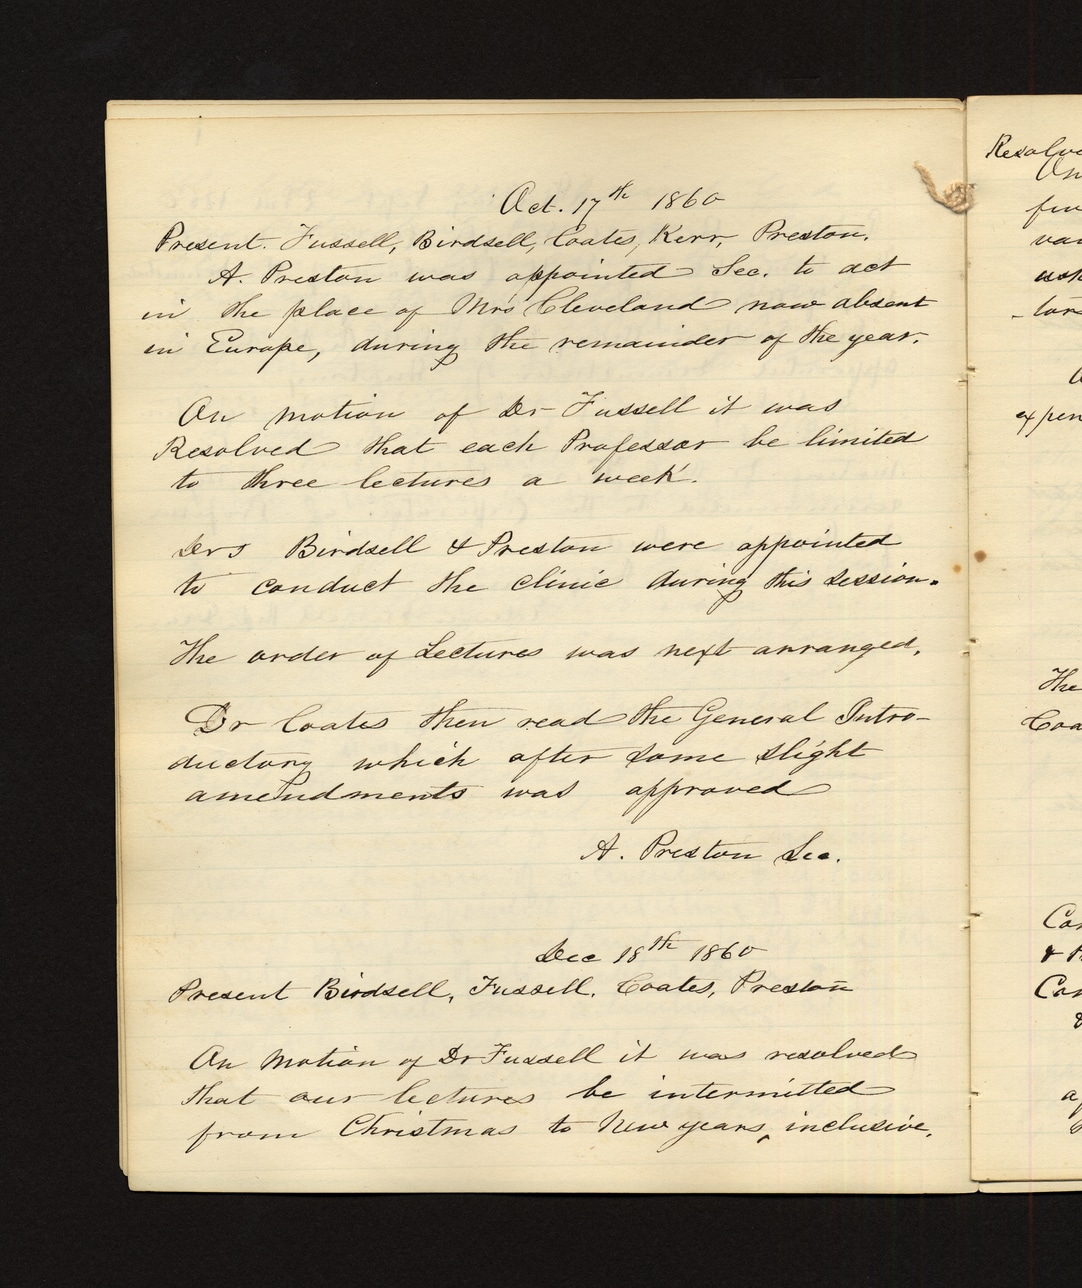 Oct. 17th 1860
Present. Fussell, Birdsell, Coates, Kerr, Preston.
A. Preston was appointed Sec. to act
in the place of Mrs Cleveland now absent
in Europe, during the remainder of the year.
On motion of Dr Fussell it was
Resolved that each Professor be limited
to three lectures a week.
Drs Birdsell & Preston were appointed
to conduct the clinic during this session.
The order of Lectures was next arranged.
Dr Coates then read the General Intro-
ductory which after some slight
amendments was approved
A. Preston Sec.
Dec 18th 1860
Present Birdsell, Fussell, Coates, Preston
On motion of Dr Fussell it was resolved
that our lectures be intermitted
from Christmas to New years, inclusive.
The